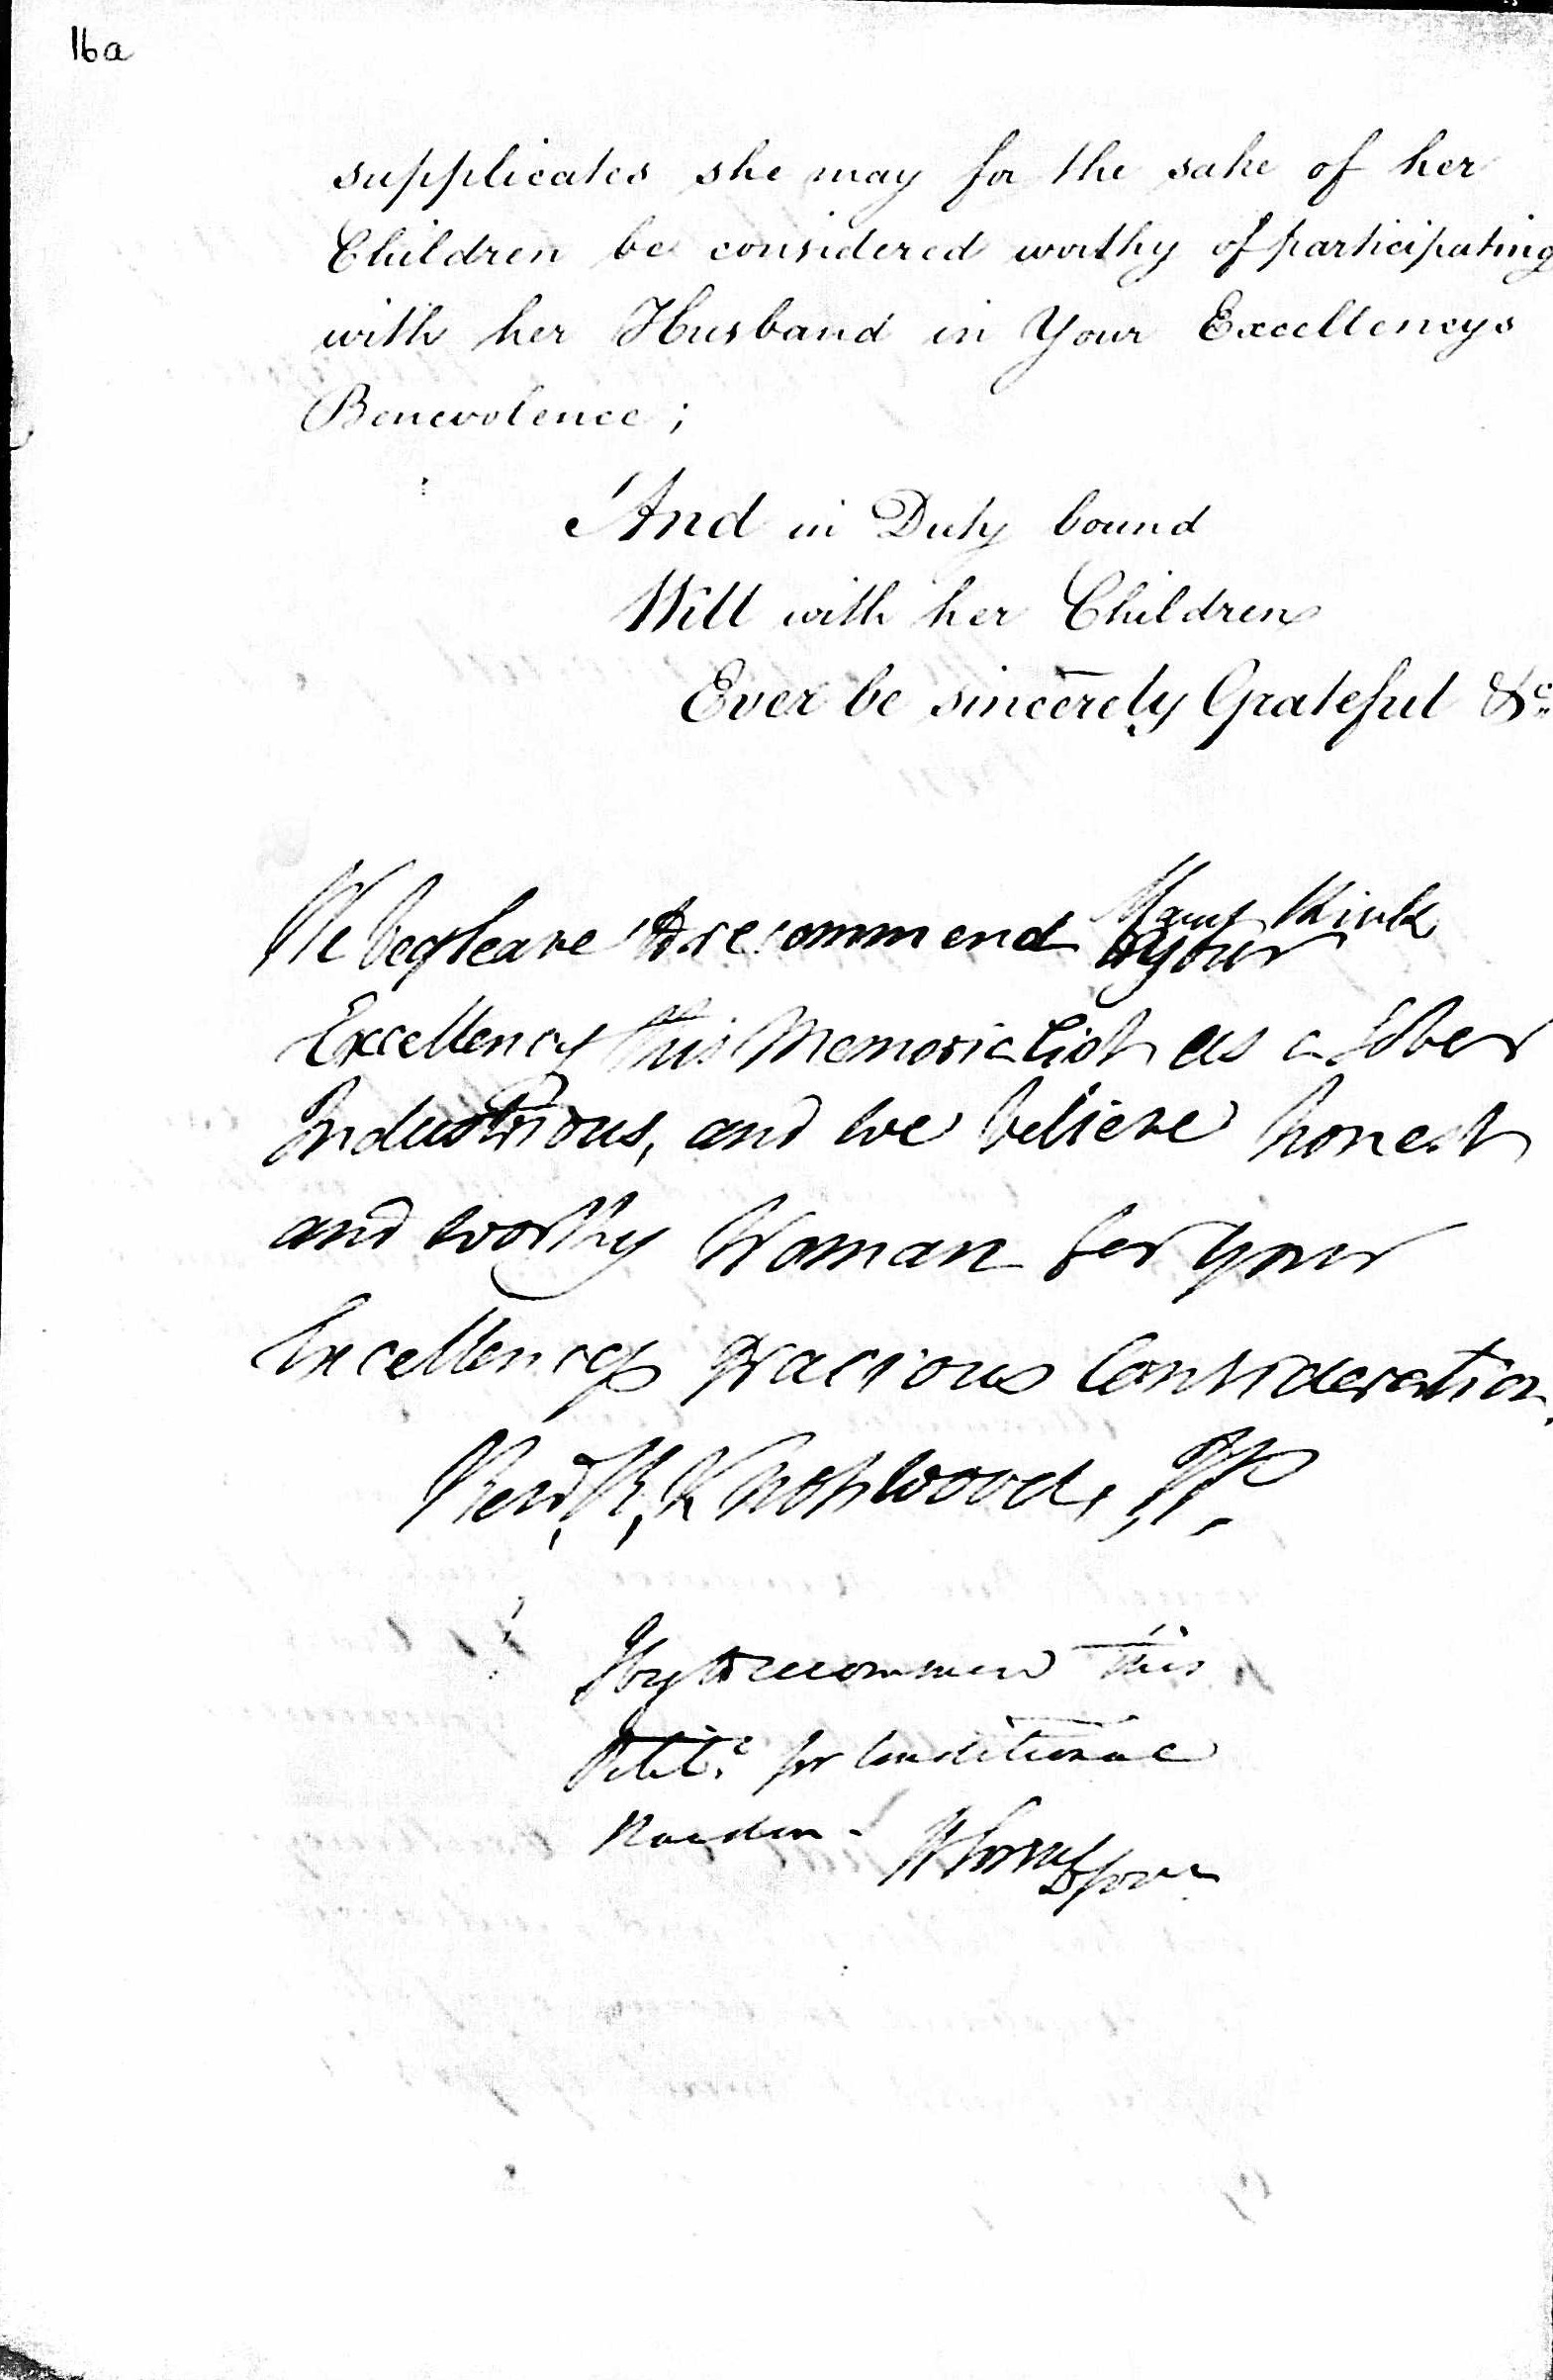 16a
supplicates she may for the sake of her
Children be considered worthy of participating
with her Husband in Your Excellencys
Benevolence;
And in Duty bound
Will with her Children
Ever be sincerely Grateful &c
Mary Kirk
We beg leave to recommend to your
Excellency this Memorialist as a Sober
Industrious, and we believe honest
and worthy Woman for your
Excellencys gracious Consideration.
Revd, R, Knopwood, JP.
I beg to recommend this
Petit.r for Conditional
Pardon - W Sorell Lt Gov